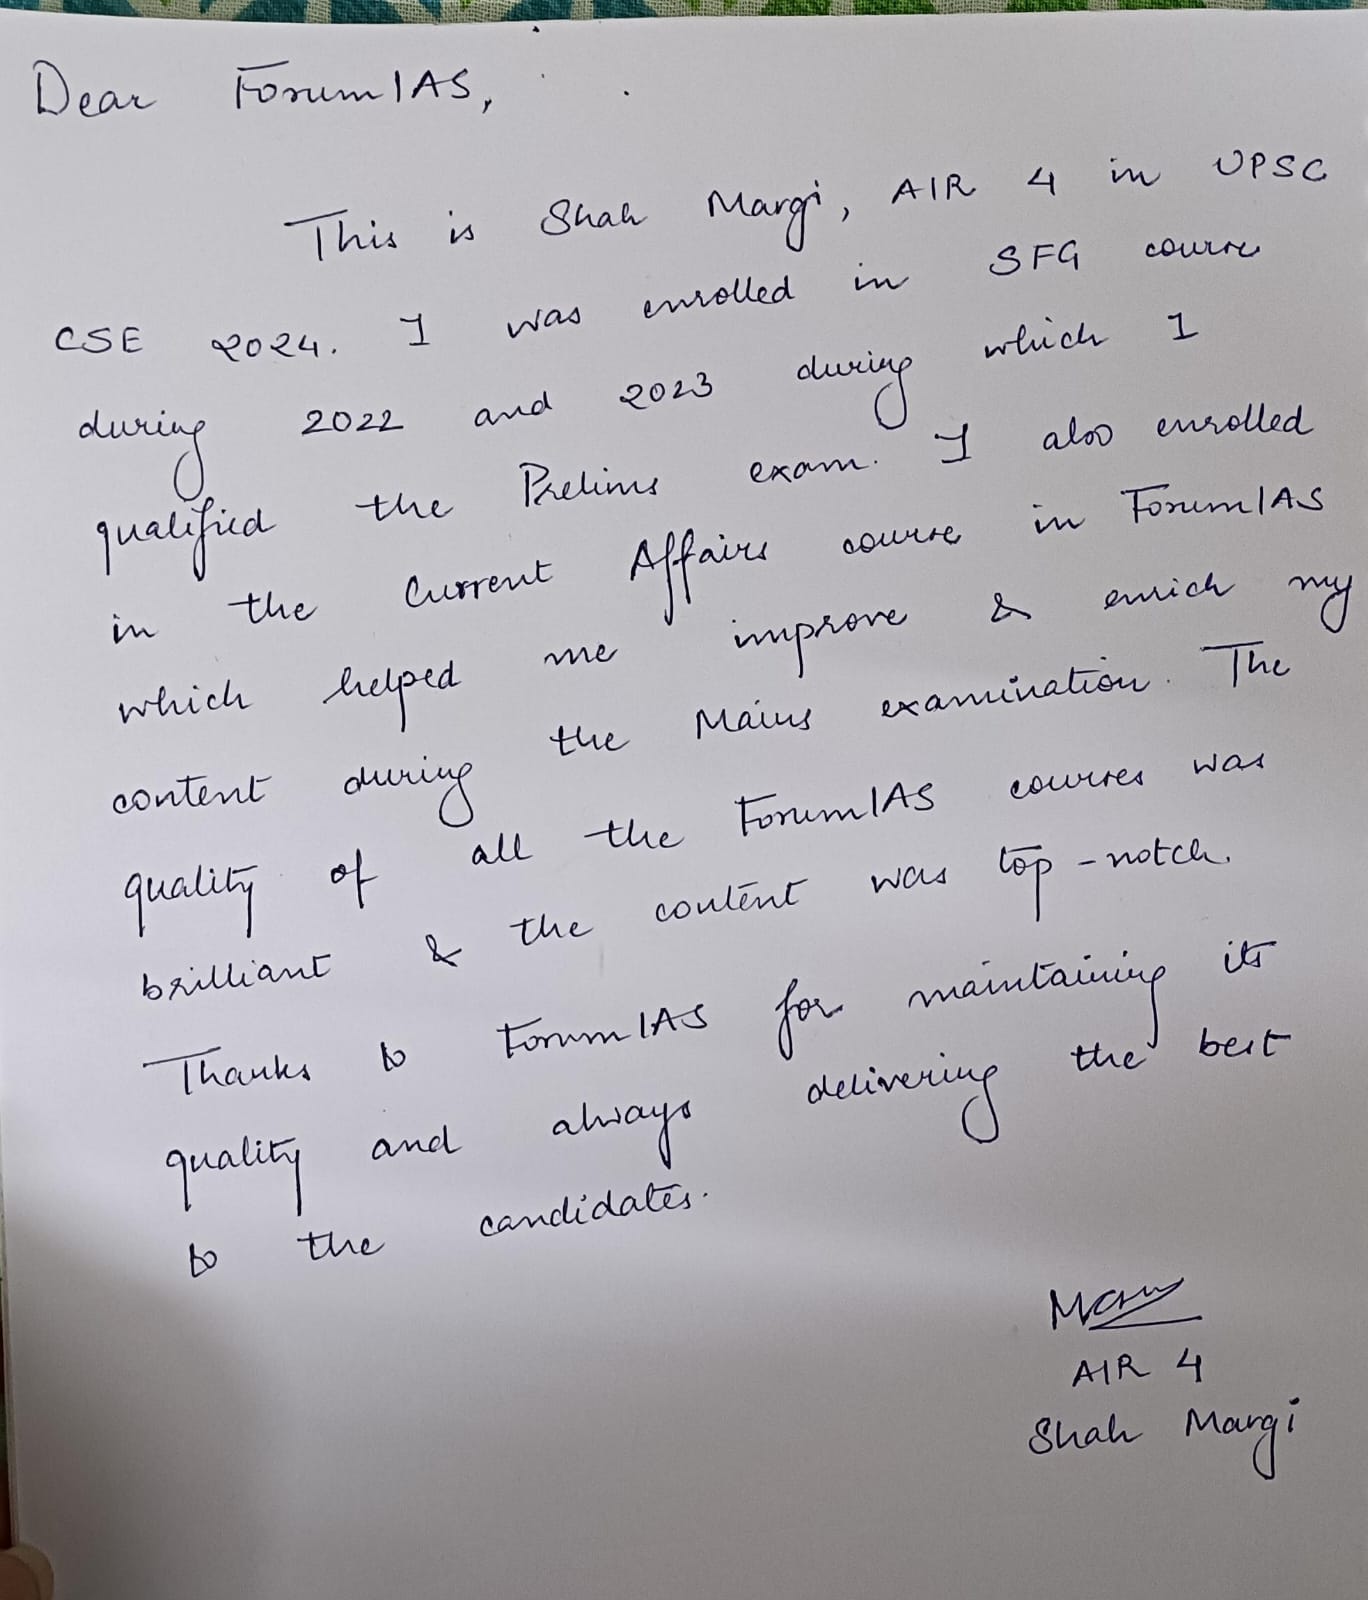 Dear ForumIAS,
This is Shah Margi, AIR 4 in UPSC
CSE 2024. I was enrolled in SFG course
during 2022 and 2023 during which I
qualified the Prelims exam. I also enrolled
in the Current Affairs course in ForumIAS
which helped me improve & enrich my
content during the Mains examination. The
quality of all the ForumIAS courses was
brilliant & the content was top-notch.
Thanks to ForumIAS for maintaining its
quality and always delivering the best
to the candidates.
AIR 4
Shah Margi